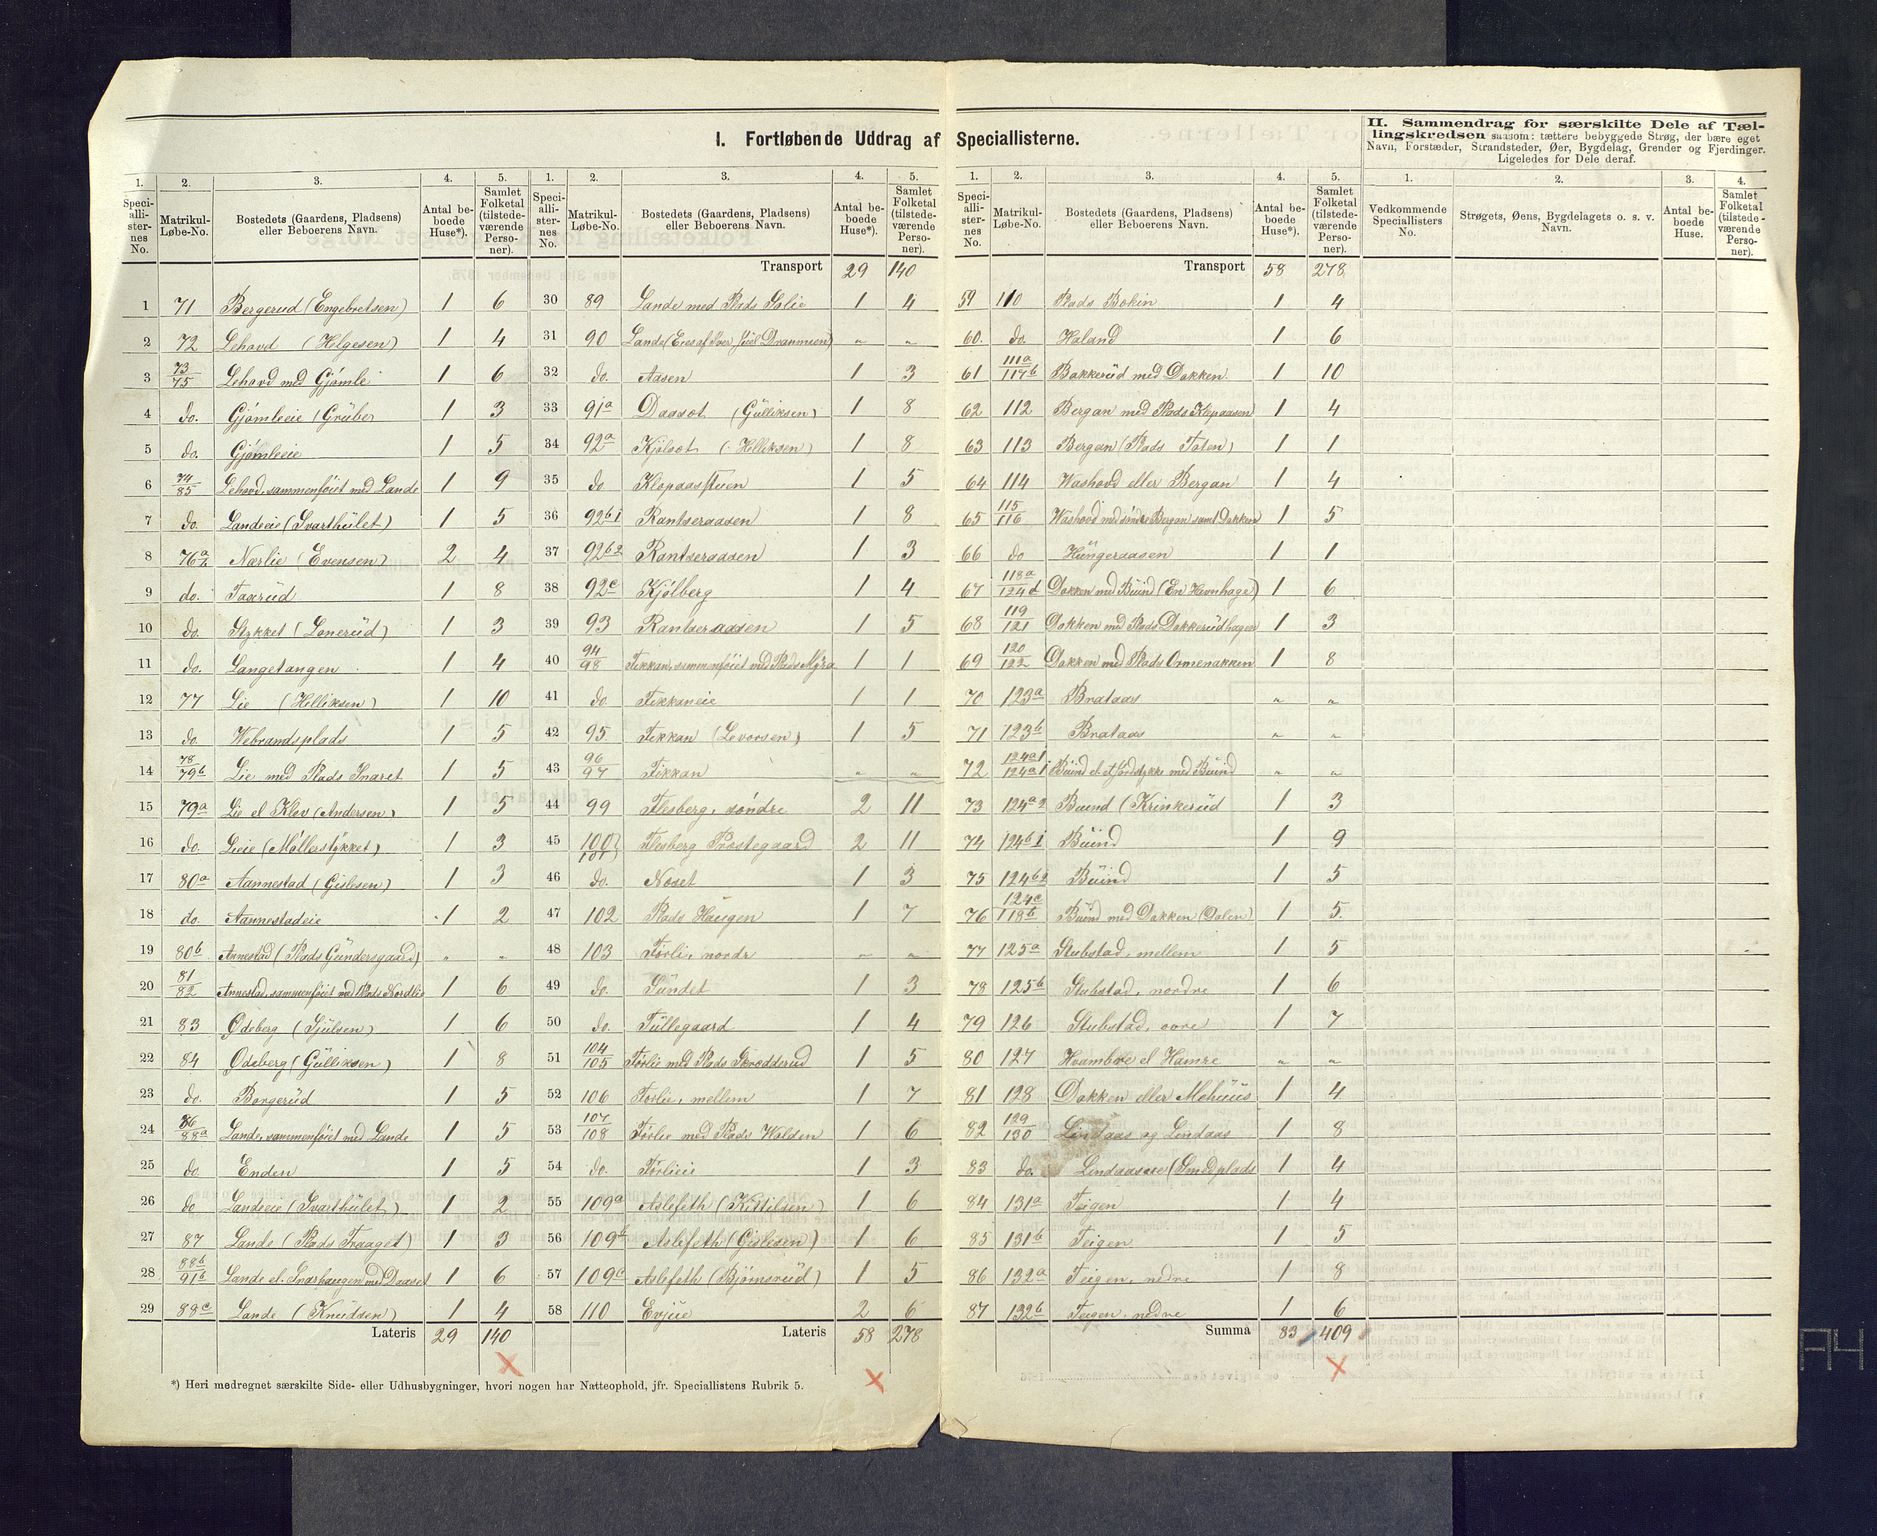 I. Fortløbende Uddrag af Speciallisterne.
II. Sammendrag for særskilte Dele af Tællingskredsen saasom: tættere bebyggede Strøg, der bære eget Navn, Forstæder, Strandsteder, Øer, Bygdelag, Grender og Fjerdinger. Ligeledes for Dele deraf.
1. 2. 3. 4. 5. 1. 2. 3. 4. 5. 1. 2. 3. 4. 5. 1. 2. 3. 4.
Speciallisternes No. Matrikul-Løbe-No. Bostedets (Gaardens, Pladsens) eller Beboerens Navn. Antal beboede Huse*). Samlet Folketal (tilstedeværende Personer).
Speciallisternes No. Matrikul-Løbe-No. Bostedets (Gaardens, Pladsens) eller Beboerens Navn. Antal beboede Huse*). Samlet Folketal (tilstedeværende Personer).
Speciallisternes No. Matrikul-Løbe-No. Bostedets (Gaardens, Pladsens) eller Beboerens Navn. Antal beboede Huse*). Samlet Folketal (tilstedeværende Personer).
Vedkommende Speciallisters No. Strøgets, Øens, Bygdelagets o. s. v. Navn. Antal beboede Huse. Samlet Folketal (tilstedeværende Personer).
1 71 Bergerud (Engebretsen) 1 6
2 72 Lehovd (Helgesen) 1 4
3 73/75 Lehovd med Gjømle 1 6
4 do. Gjømleeie (Grube) 1 3
5 do. Gjømleeie 1 5
6 74/85 Lehovd, sammenføiet med Lande 1 9
7 do. Landeeie (Svarthület) 1 5
8 76a Nærlie (Evensen) 2 4
9 do. Faxrüd 1 8
10 do. Stykket (Lonerüd) 1 3
11 do. Langetangen 1 4
12 77 Lie (Helliksen) 1 10
13 do. Webrandsplads 1 5
14 78/79b Lie med Plads Snaret 1 5
15 79a Lie el Klov (Andersen) 1 5
16 do. Lieie (Møllerstykket) 1 3
17 80a Aannestad (Gislesen) 1 3
18 do. Aannestadeie 1 2
19 80b Annestad (Plads Gündersgaard) " "
20 81/82 Annestad, sammenføiet med Plads Nordlie 1 6
21 83 Ødeberg (Sjülsen) 1 6
22 84 Ødeberg (Gülliksen) 1 8
23 do. Borgerüd 1 5
24 86/88a Lande, sammenføiet med Lande 1 5
25 do. Enden 1 5
26 do Landeeie (Svarthület) 1 2
27 87 Lande (Plads Traaget) 1 3
28 88b/91b Lande el. Snarhaugen med Daaset 1 6
29 88c Lande (Knüdsen) 1 4
Lateris 29 140
Transport 29 140
30 89 Lande med Plads Solie 1 4
31 90 Lande (Eies af Iver Juel Drammen) " "
32 do. Aasen 1 3
33 91a Daasot (Gülliksen) 1 8
34 92a Kjølsot (Helliksen) 1 8
35 do Klopaasstuen 1 5
36 92b1 Rantseraasen 1 8
37 92b2 Rantseraasen 1 3
38 92c Kjølberg 1 4
39 93 Rantseraasen 1 5
40 94/98 Fikkan, sammenføiet med Plads Myra 1 1
41 do. Fikkaneie 1 1
42 95 Fikkan (Levorsen) 1 5
43 96/97 Fikkan " "
44 99 Flesberg, søndre 2 11
45 100/101 Flesberg Præstegaard 2 11
46 do. Noset 1 3
47 102 Plads Haugen 1 7
48 103 Førli, nordr " "
49 do. Sündet 1 3
50 do. Tüllegaard 1 4
51 104/105 Førlie med Plads Skrædderud 1 5
52 106 Førlie, mellem 1 7
53 107/108 Førlie med Plads Halden 1 6
54 do. Førlieie 1 3
55 109a Aslefeth (Kittilsen) 1 6
56 109b Aslefeth (Gislesen) 1 6
57 109c Aslefeth (Bjørnsrüd) 1 5
58 110 Evjüe 2 6
Lateris 58 278
Transport 58 278
59 110 Plads Bokin 1 4
60. do. Haland 1 6
61 111a/117b Bakkerüd med Dokken. 1 10
62 112 Bergan med Plads Klopaasen 1 4
63 113 Bergan (Plads Toten) 1 1
64 114 Washovd eller Bergan 1 4
65 115/116 Washovd med søndre Bergan samt Dokken 1 5
66 do Hüngeraasen 1 1
67 118a/124d Dokken med Büind (En Havnhage) 1 6
68 119/121 Dokken med Plads Dokkerüdhagen 1 3
69 120/122 Dokken med Plads Ormenakken 1 8
70 123a Brataas " "
71 123b Brataas " "
72 124a1/124a1 Büind el et Jordstykke med Büind " "
73 124a2 Buind (Krinkerüd 1 3
74 124b1 Büind 1 9
75 124b2 Büind 1 5
76 124c/118b Büind med Dokken (Dalen) 1 5.
77 125a Stubstad, mellem 1 5
78 125b Stubstad, nordre 1 6
79 126 Stubstad, øvre 1 7
80 127 Hvambre el Hamre " "
81 128 Dokken eller Mehüüs 1 4
82 129/130 Lindaas og Lindaas 1 8
83 do. Lindaaseie (Smedplads 1 4
84 131a Teigen 1 4
85 131b Teigen 1 5
86 132a Teigen, nedre 1 8
87 132b Teigen, nedre 1 6
Summa 83 409
*) Heri medregnet særskilte Side- eller Udhusbygninger, hvori nogen har Natteophold, jfr. Speciallistens Rubrik 5.